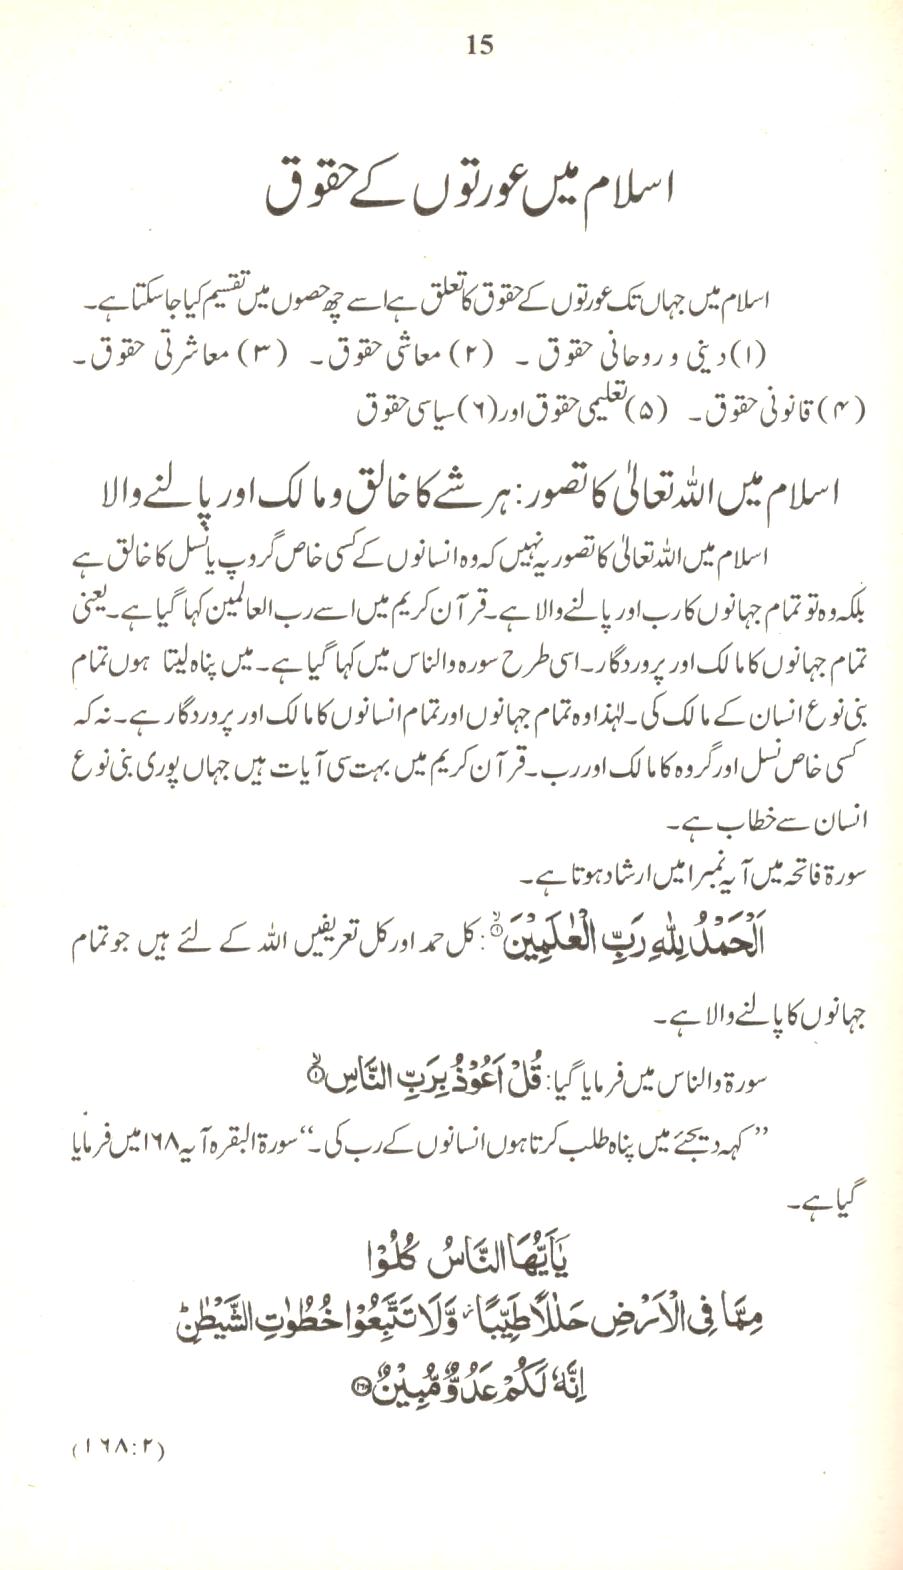 15
اسلام میں عورتوں کے حقوق
اسلام میں جہاں تک عورتوں کے حقوق کا تعلق ہے اسے چھ حصوں میں تقسیم کیا جا سکتا ہے۔
(۱) دینی و روحانی حقوق ۔ (۲) معاشی حقوق۔ (۳) معاشرتی حقوق۔
(۴) قانونی حقوق۔ (۵) تعلیمی حقوق اور (۶) سیاسی حقوق
اسلام میں اللہ تعالیٰ کا تصور: ہر شے کا خالق و مالک اور پالنے والا
اسلام میں اللہ تعالیٰ کا تصور یہ نہیں کہ وہ انسانوں کے کسی خاص گروپ یا نسل کا خالق ہے
بلکہ وہ تو تمام جہانوں کا رب اور پالنے والا ہے۔ قرآن کریم میں اسے رب العالمین کہا گیا ہے۔ یعنی
تمام جہانوں کا مالک اور پروردگار۔ اسی طرح سورہ والناس میں کہا گیا ہے۔ میں پناہ لیتا ہوں تمام
بنی نوع انسان کے مالک کی۔ لہٰذا وہ تمام جہانوں اور تمام انسانوں کا مالک اور پروردگار ہے۔ نہ کہ
کسی خاص نسل اور گروہ کا مالک اور رب۔ قرآن کریم میں بہت سی آیات ہیں جہاں پوری بنی نوع
انسان سے خطاب ہے۔
سورۃ فاتحہ میں آیہ نمبر۱ میں ارشاد ہوتا ہے۔
اَلْحَمْدُ لِلّٰهِ رَبِّ الْعٰلَمِيْنَ ۙ﴿۱﴾: کل حمد اور کل تعریفیں اللہ کے لئے ہیں جو تمام
جہانوں کا پالنے والا ہے۔
سورۃ والناس میں فرمایا گیا: قُلْ اَعُوْذُ بِرَبِّ النَّاسِ ۙ﴿۱﴾
’’کہہ دیجئے میں پناہ طلب کرتا ہوں انسانوں کے رب کی۔‘‘ سورۃ البقرہ آیہ ۱۶۸ میں فرمایا
گیا ہے۔
يٰۤاَيُّهَا النَّاسُ كُلُوْا
مِمَّا فِى الْاَرْضِ حَلٰلًا طَيِّبًا ۖ وَّلَا تَتَّبِعُوْا خُطُوٰتِ الشَّيْطٰنِ ؕ
اِنَّهٗ لَكُمْ عَدُوٌّ مُّبِيْنٌ ﴿۱۶۸﴾
(۱۶۸:۲)